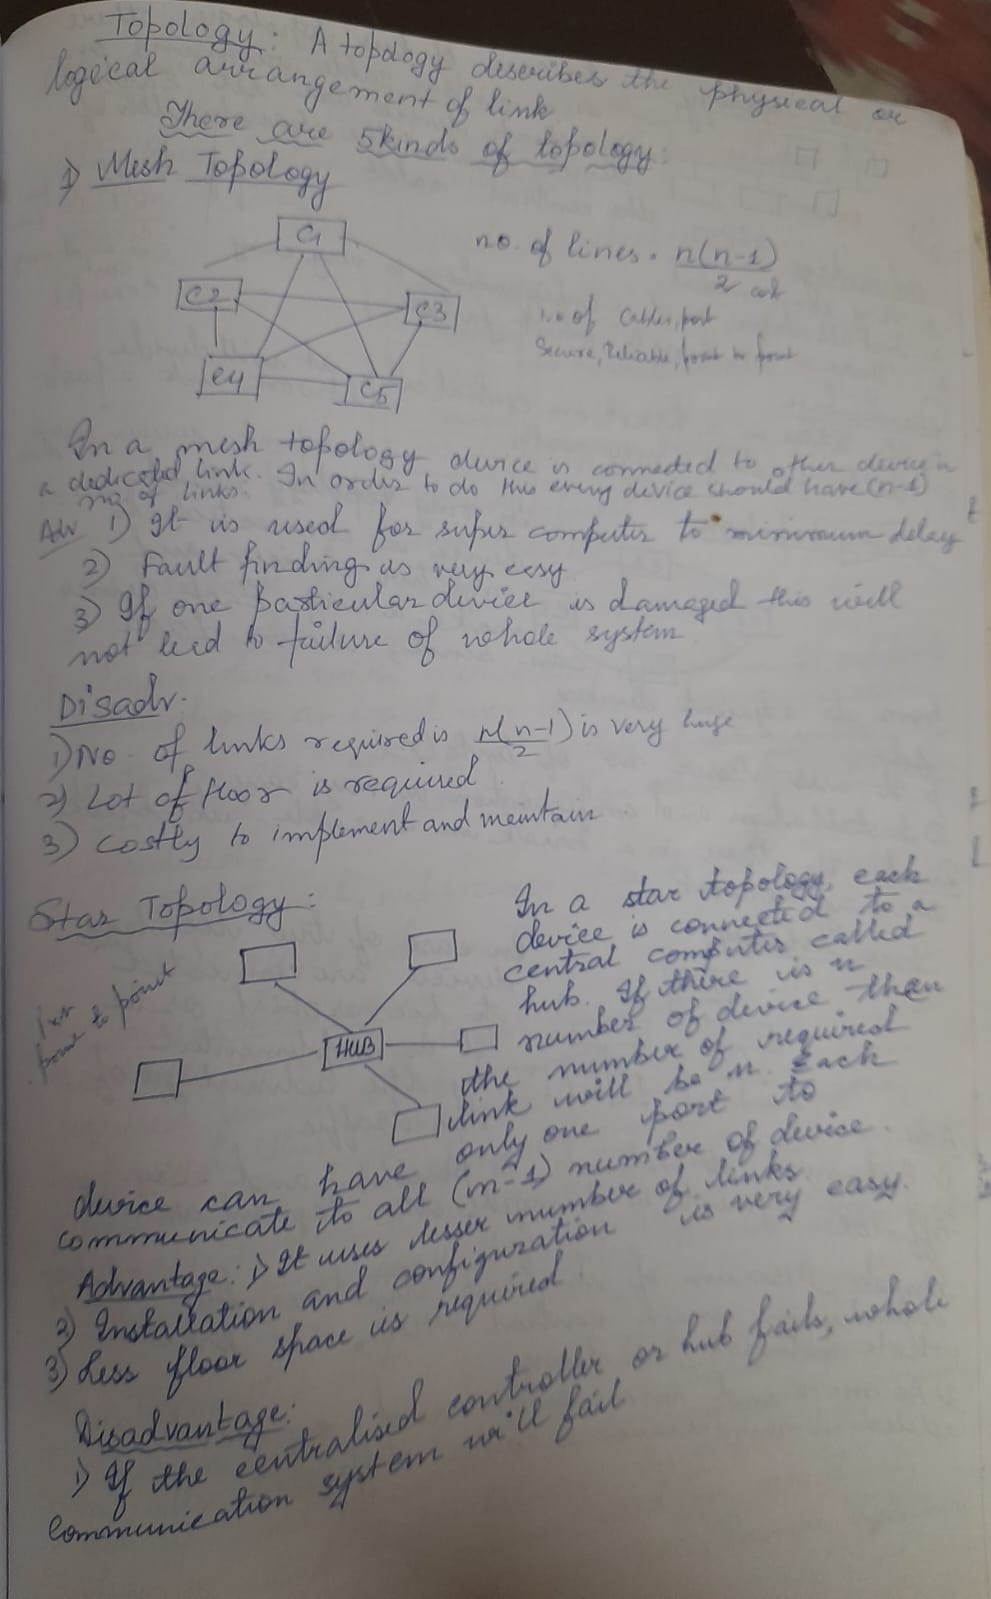 Topology: A topology describes the physical or
logical arrangement of link
There are 5 kinds of topology:
1) Mesh Topology
C1
C2
C3
C4
C5
no. of lines = n(n-1)/2
no of cables, port
Secure, Reliable, point to point
In a mesh topology device is connected to other device in
a dedicated link. In order to do this every device should have (n-1)
no of links.
Adv 1) It is used for super computer to minimum delay
2) Fault finding is very easy
3) If one particular device is damaged this will
not lead to failure of whole system
Disadv.
1) No. of links required is n(n-1)/2 is very huge
2) Lot of floor is required
3) Costly to implement and maintain.
Star Topology:
point to point
HUB
In a star topology, each
device is connected to a
central computer called
hub. If there is n
number of device then
the number of required
link will be n. Each
device can have only one port to
communicate to all (n-1) number of device.
Advantage: 1) It uses lesser number of links
2) Installation and configuration is very easy.
3) Less floor space is required.
Disadvantage:
1) If the centralised controller or hub fails, whole
communication system will fail